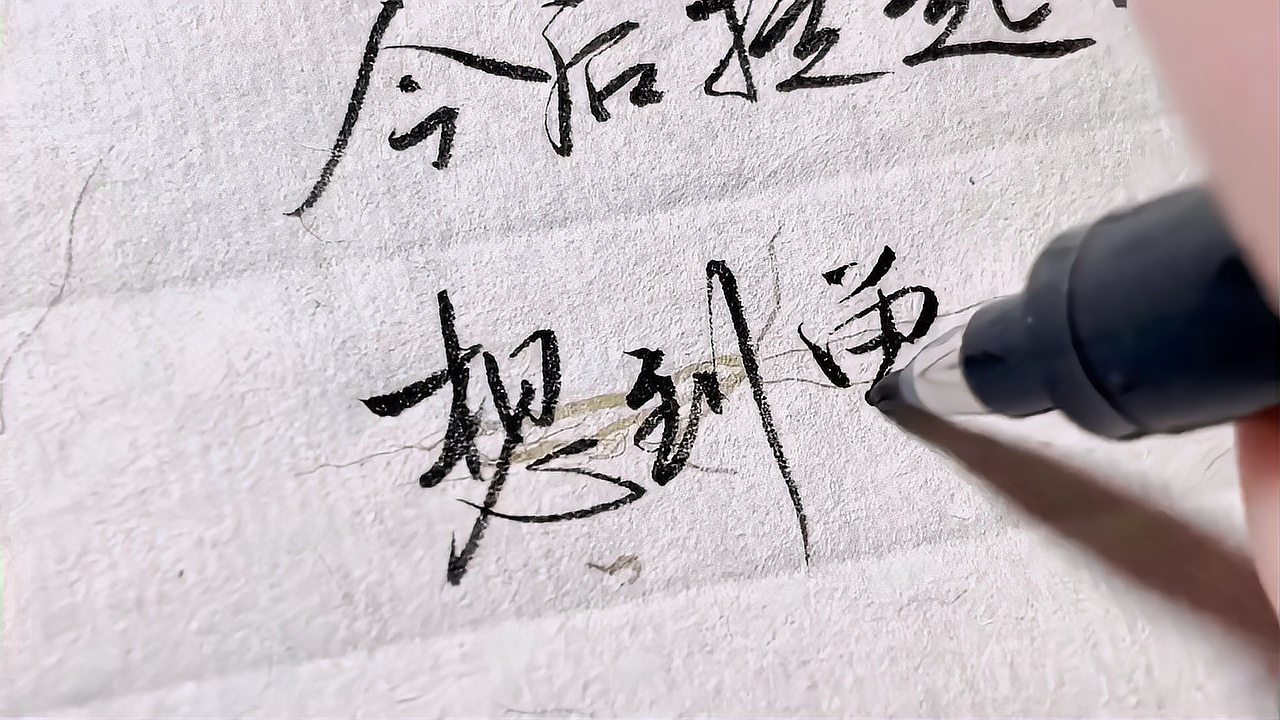 今后提起
想到